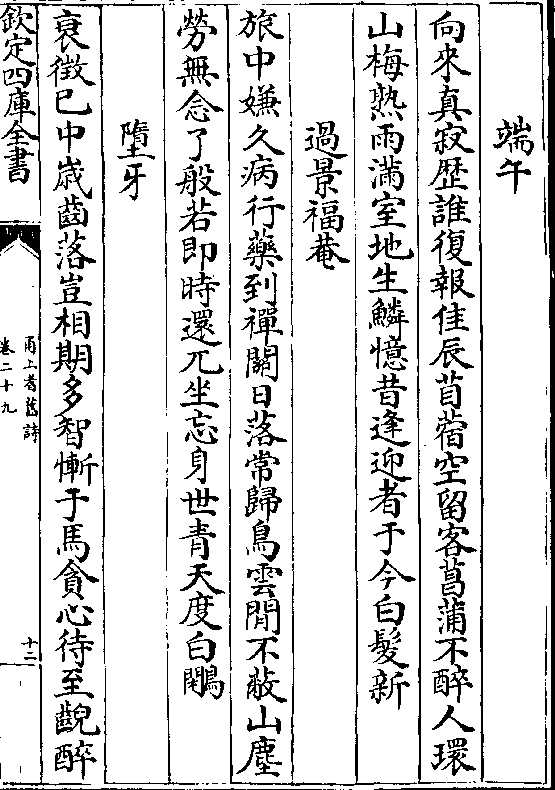 端午
向來真寂歴誰復報佳辰苜蓿空留客菖蒲不醉人環
山梅熟雨滿室地生鱗憶昔逢迎者于今白髮新
過景福菴
旅中嫌久病行藥到禪關日落常歸鳥雲閒不敝山塵
勞無念了般若即時還兀坐忘身世青天度白鷴
墮牙
衰徵已中嵗齒落豈相期多智慚于馬貪心待至齯醉
欽定四庫全書
甬上耆舊詩
卷二十九
十二